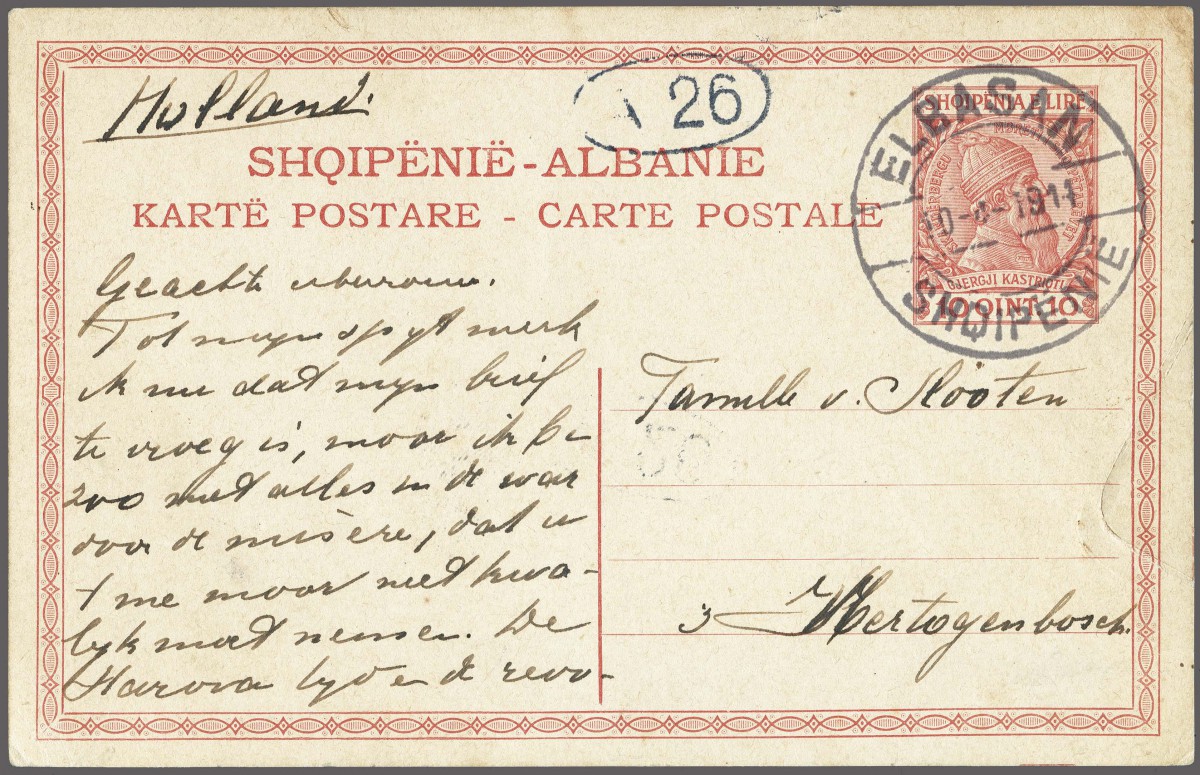 Holland.
A 26
SHQIPËNIË - ALBANIE
KARTË POSTARE - CARTE POSTALE
SHQIPENIA E LIRE
GJERGJI KASTRIOTI
10 QINT 10
ELBASAN
10-4-1914
SHQIPENIE
Geachte mevrouw.
Tot mijn spijt merk
ik nu dat mijn brief
te vroeg is, maar ik be
zoo met alles in de war
door de misère, dat u
't me maar niet kwa-
lijk moet nemen. De
en de revo-
Familie v. Slooten
's Hertogenbosch.